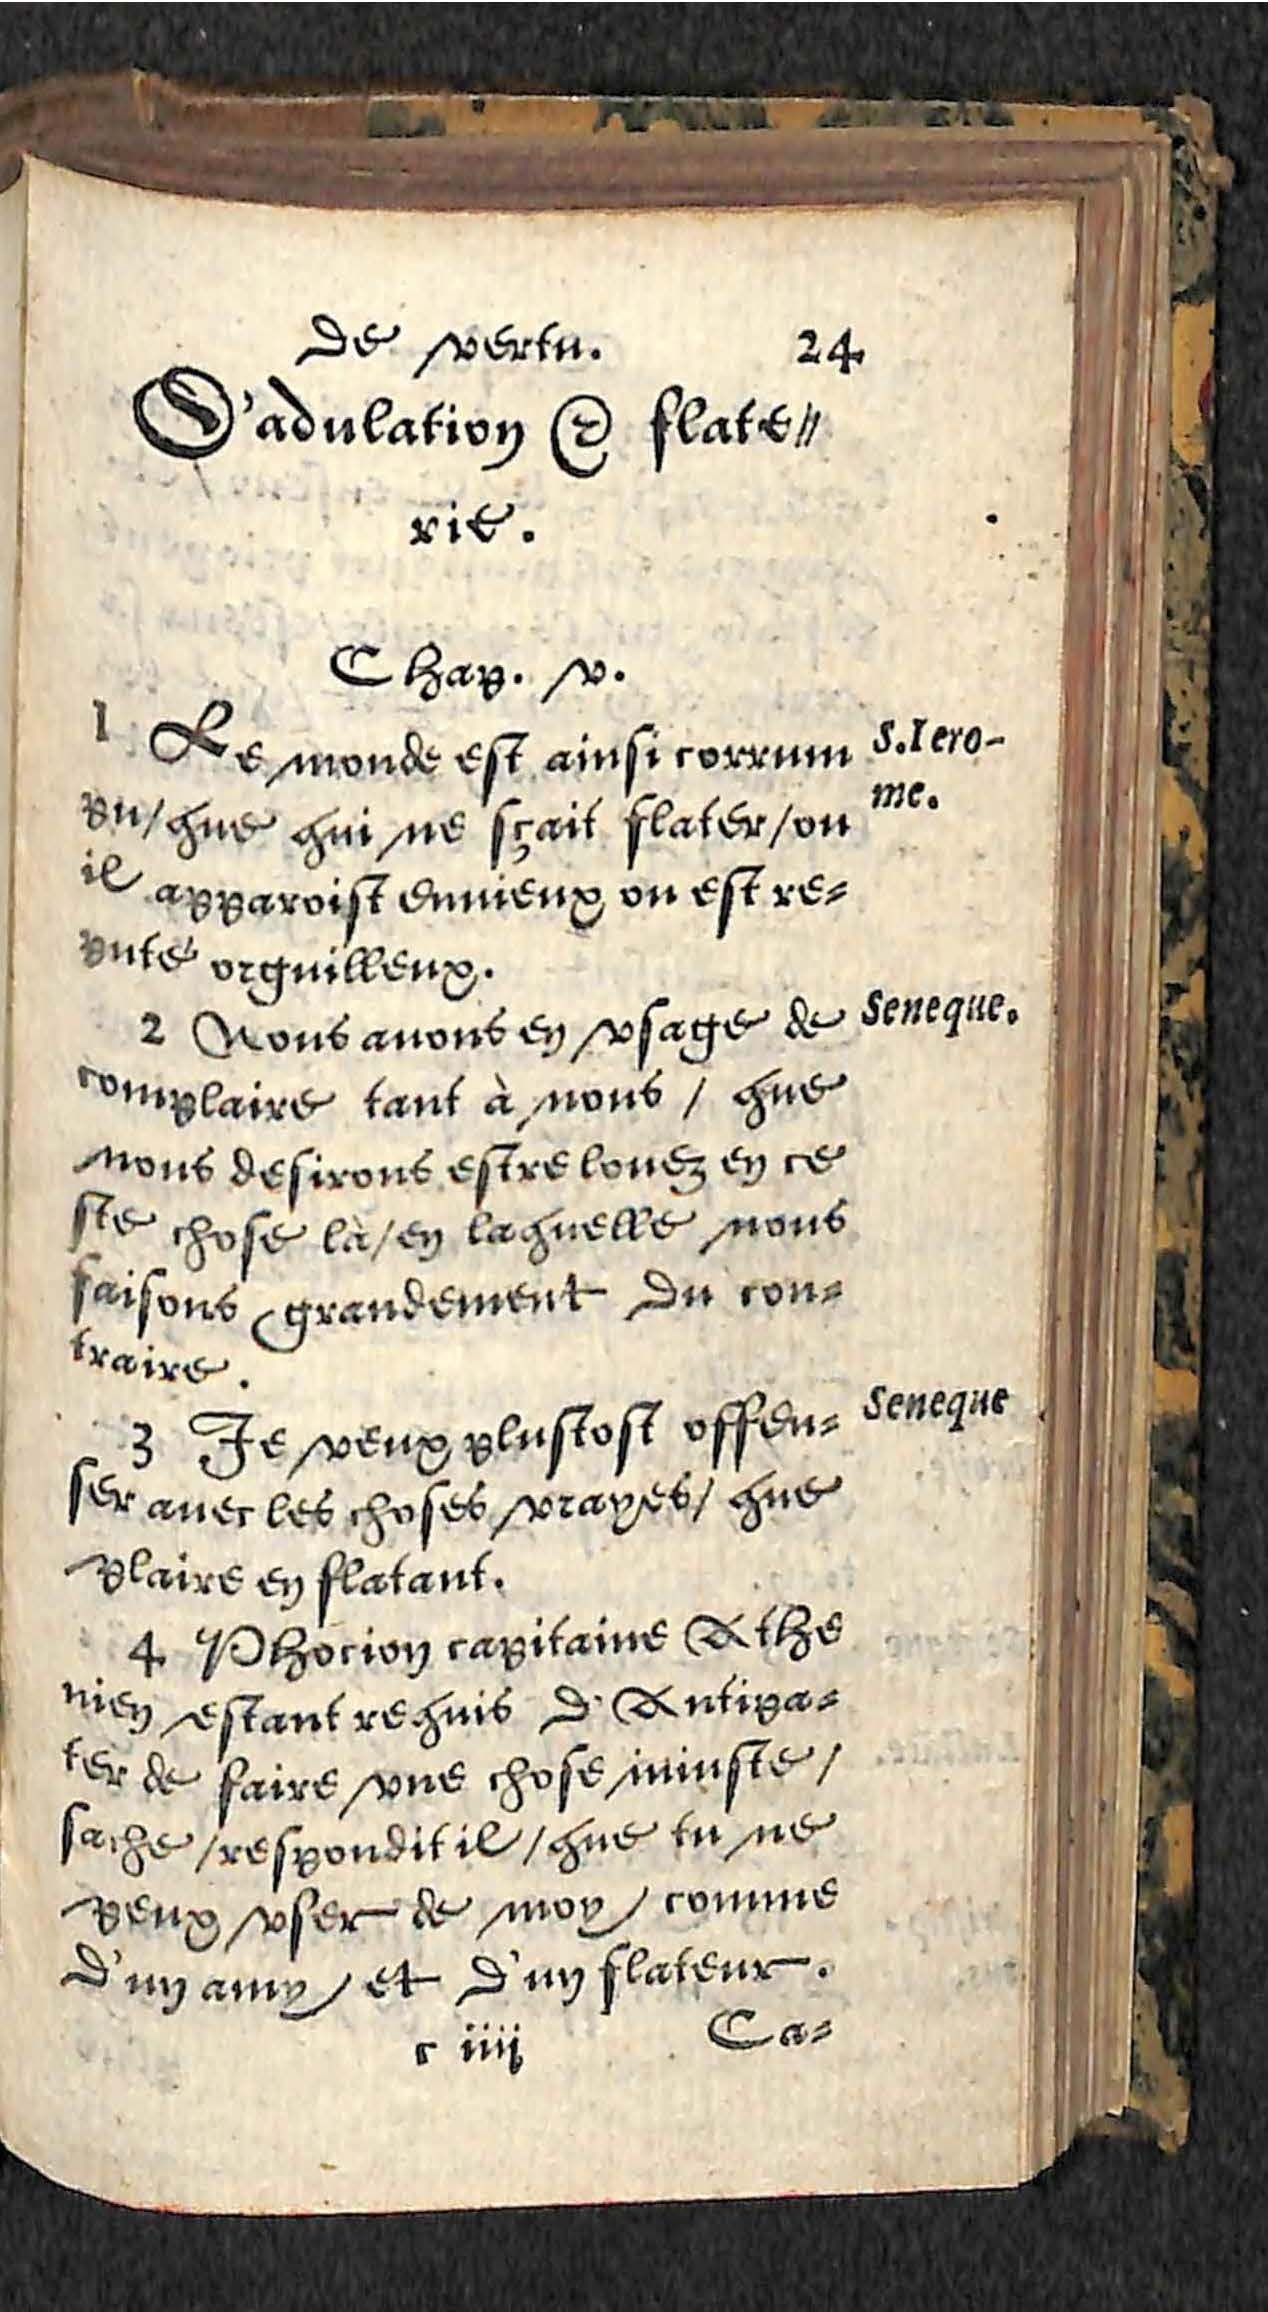 de vertu. 24
D'adulation & flate=
rie.
Chap. v.
1 Le monde est ainsi corrum
pu/que qui ne sçait flater/ou
il apparoist enuieux ou est re=
puté orguilleux.
S.Iero-
me.
2 Nous auons en vsage de
complaire tant à nous / que
nous desirons estre louez en ce
ste chose là/en laquelle nous
faisons grandement du con=
traire.
Seneque.
3 Je veux plustost offen=
ser auec les choses vrayes/ que
plaire en flatant.
Seneque
4 Phocion capitaine Athe
nien estant requis d'Antipa=
ter de faire vne chose iniuste /
sache /respondit il /que tu ne
peux vser de moy / comme
d'un amy / et d'un flateur.
c iiij Ca=